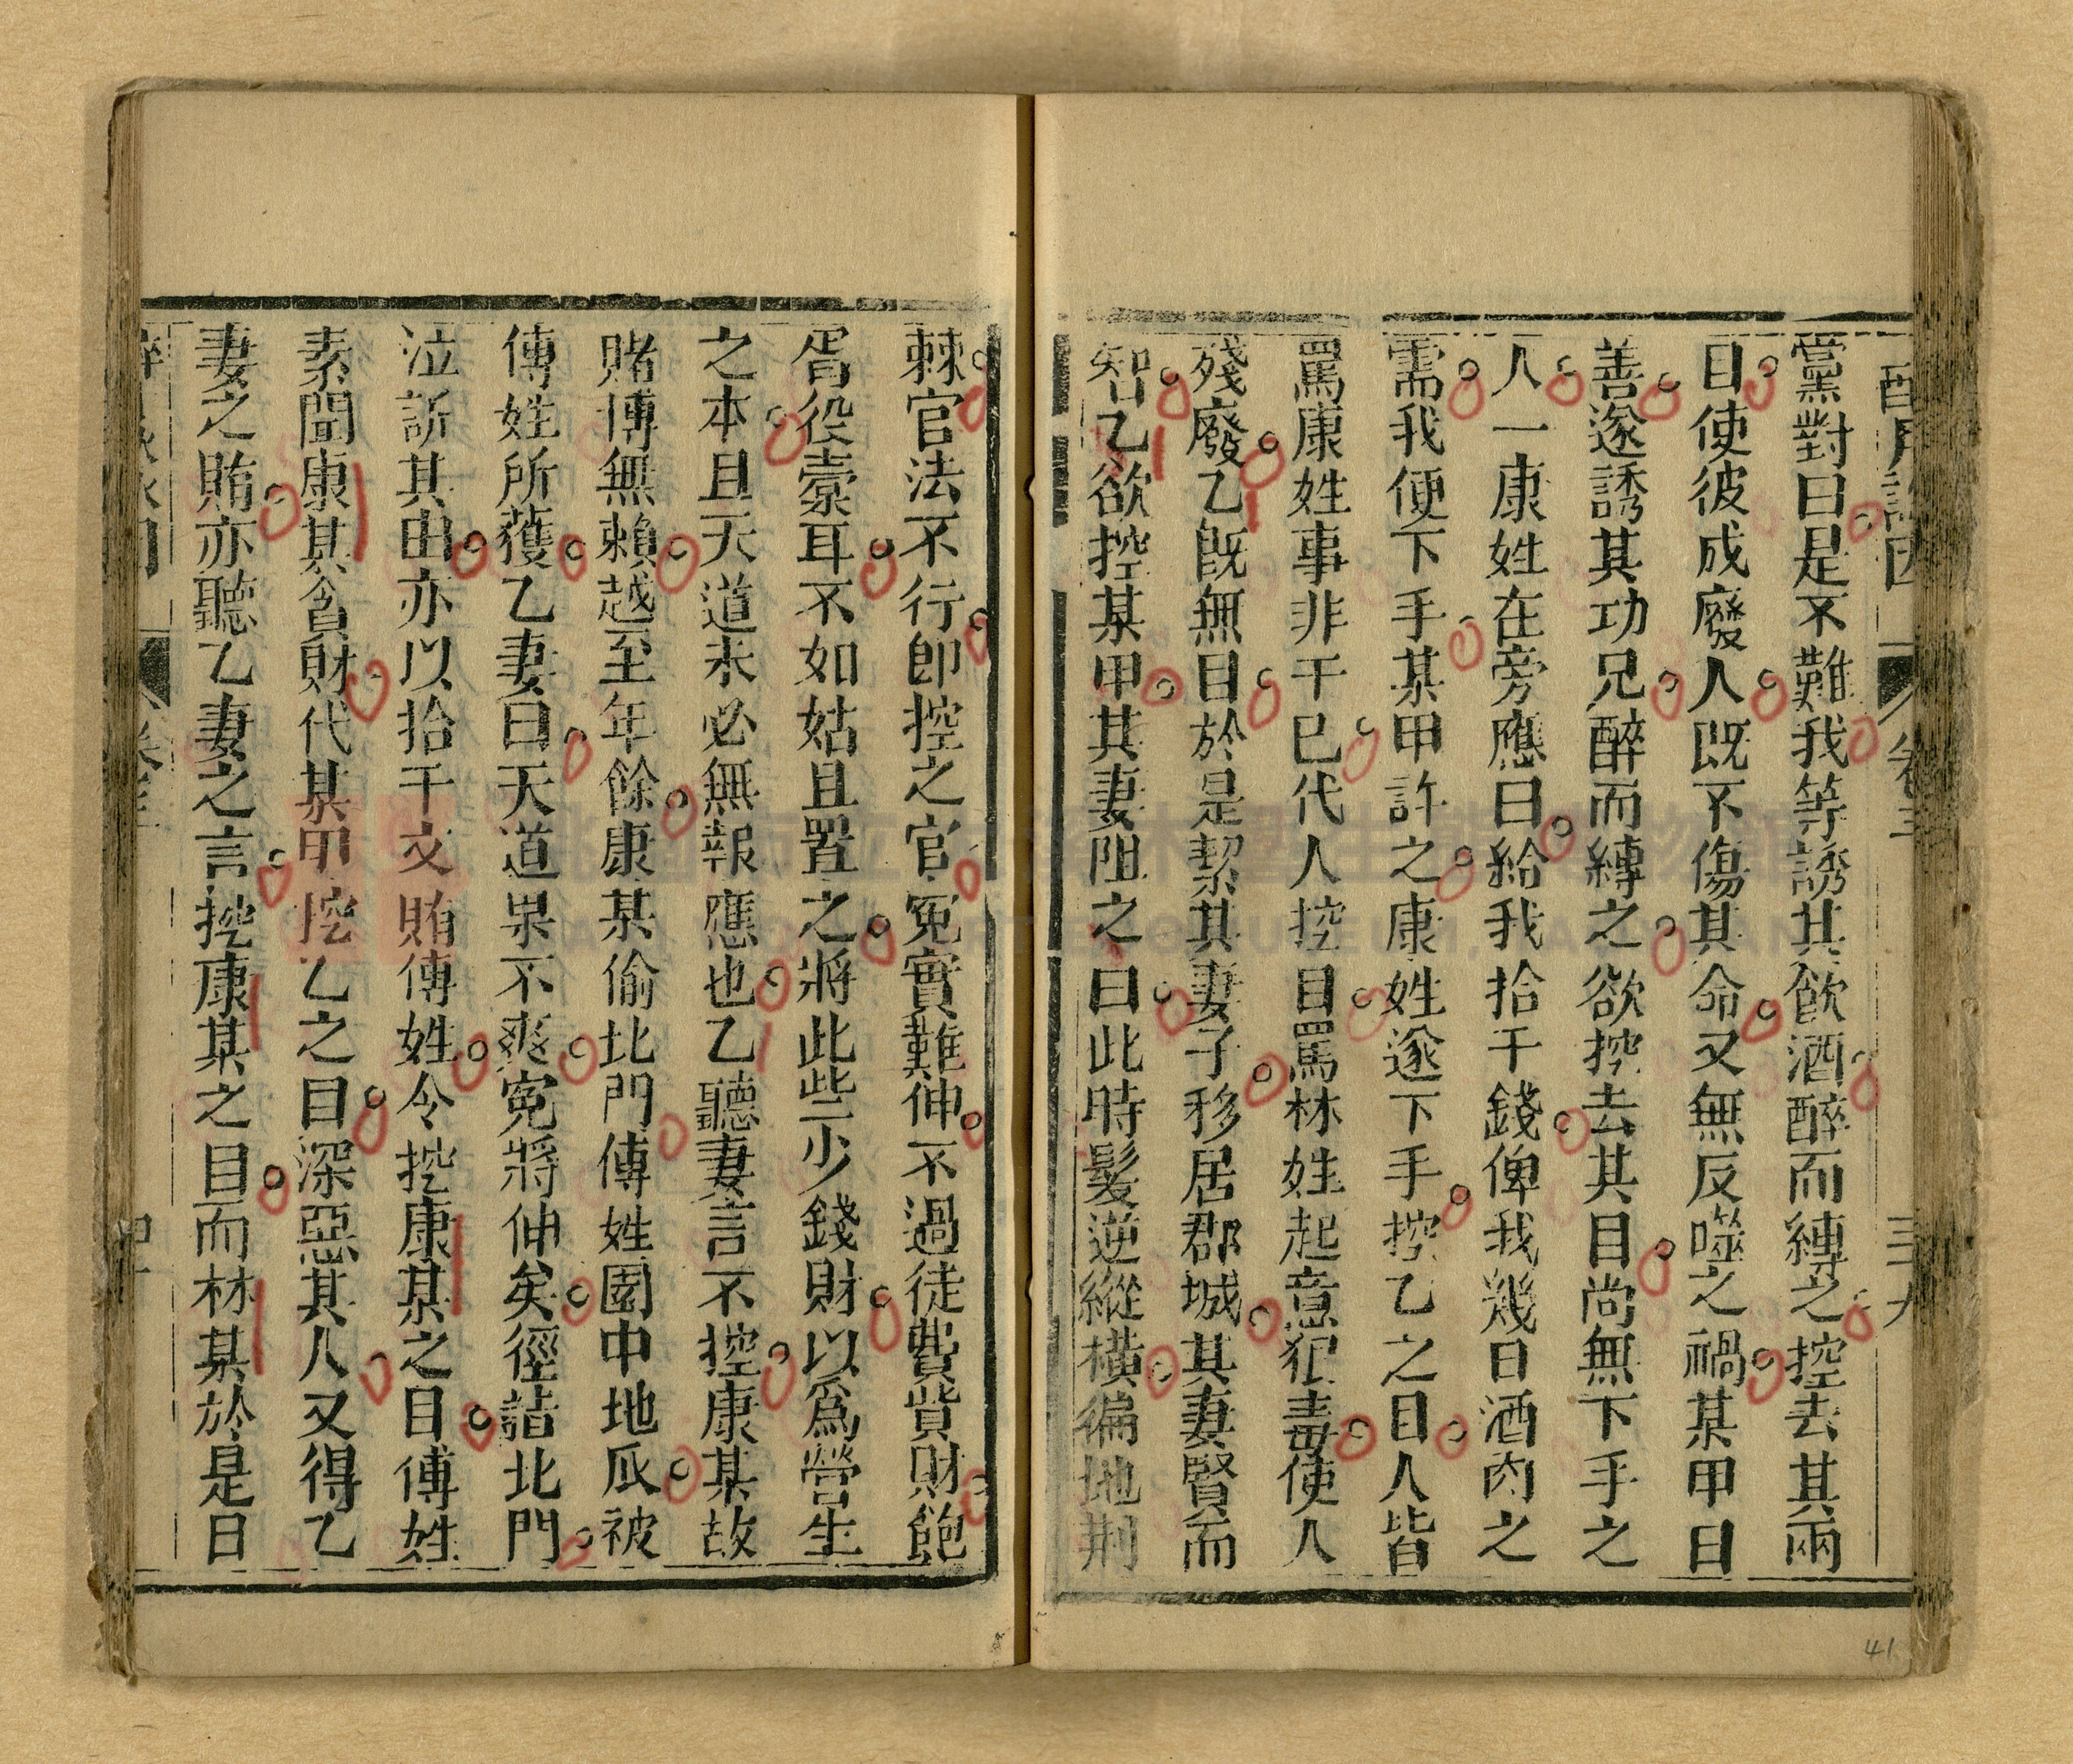 黨對曰是不難我等誘其飲酒醉而縛之控去其兩
目使彼成廢人既不傷其命又無反噬之禍某甲曰
善遂誘其功兄醉而縛之欲控去其目尚無下手之
人一康姓在旁應曰給我拾千錢俾我幾日酒肉之
需我便下手某甲許之康姓遂下手控乙之目人皆
罵康姓事非干已代人控目罵林姓起意犯毒使人
殘廢乙既無目於是挈其妻子移居郡城其妻賢而
智乙欲控某甲其妻阻之曰此時髮逆縱橫徧地荆
棘官法不行卽控之官冤實難伸不過徒費貲財飽
胥役橐耳不如姑且置之將此些少錢財以爲營生
之本且天道未必無報應也乙聽妻言不控康某故
賭博無賴越至年餘康某偷北門傅姓園中地瓜被
傅姓所獲乙妻曰天道果不爽冤將伸矣徑詣北門
泣訴其由亦以拾千文賄傅姓令控康某之目傅姓
素聞康某貪財代某甲挖乙之目深惡其人又得乙
妻之賄亦聽乙妻之言挖康某之目而林某於是日